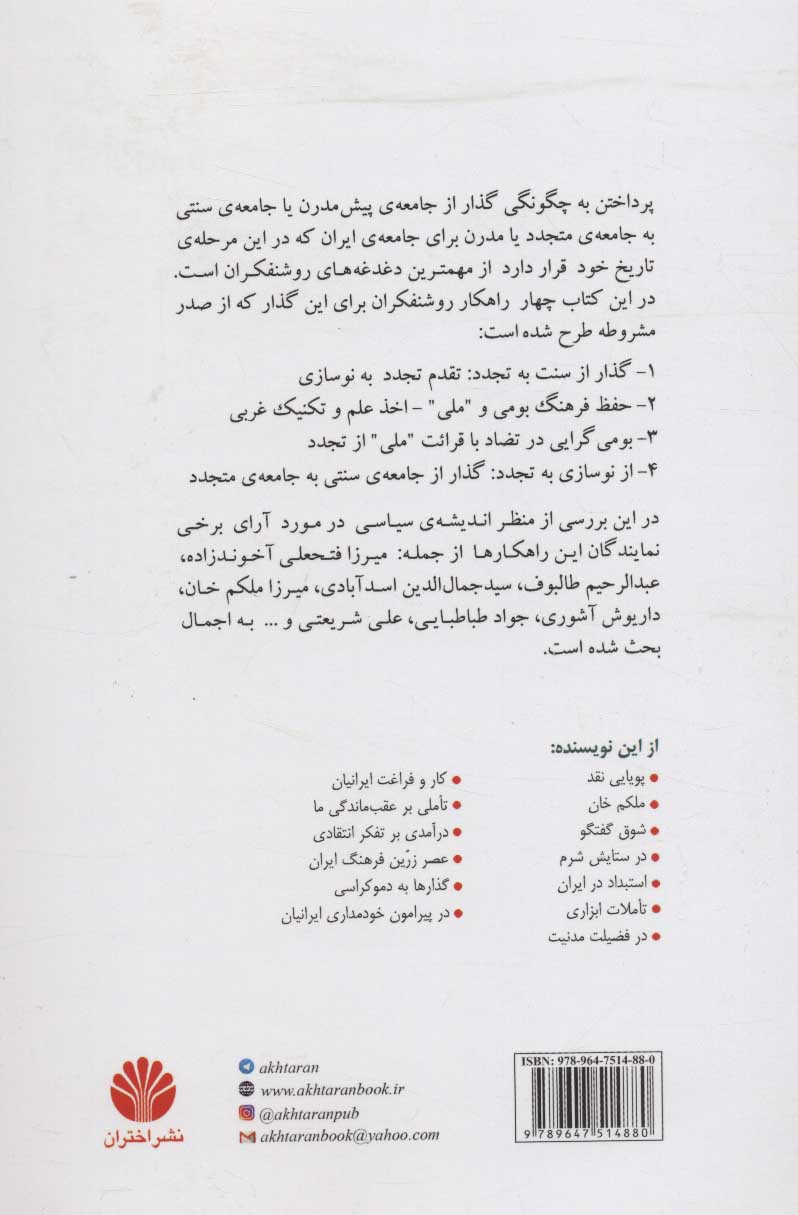 پرداختن به چگونگی گذار از جامعه‌ی پیش‌مدرن یا جامعه‌ی سنتی
به جامعه‌ی متجدد یا مدرن برای جامعه‌ی ایران که در این مرحله‌ی
تاریخ خود قرار دارد از مهمترین دغدغه‌های روشنفکران است.
در این کتاب چهار راهکار روشنفکران برای این گذار که از صدر
مشروطه طرح شده است:
۱- گذار از سنت به تجدد: تقدم تجدد به نوسازی
۲- حفظ فرهنگ بومی و "ملی" - اخذ علم و تکنیک غربی
۳- بومی‌گرایی در تضاد با قرائت "ملی" از تجدد
۴- از نوسازی به تجدد: گذار از جامعه‌ی سنتی به جامعه‌ی متجدد
در این بررسی از منظر اندیشه‌ی سیاسی در مورد آرای برخی
نمایندگان این راهکارها از جمله: میرزا فتحعلی آخوندزاده،
عبدالرحیم طالبوف، سیدجمال‌الدین اسدآبادی، میرزا ملکم خان،
داریوش آشوری، جواد طباطبایی، علی شریعتی و ... به اجمال
بحث شده است.
از این نویسنده:
● پویایی نقد
● ملکم خان
● شوق گفتگو
● در ستایش شرم
● استبداد در ایران
● تأملات ابزاری
● در فضیلت مدنیت
● کار و فراغت ایرانیان
● تأملی بر عقب‌ماندگی ما
● درآمدی بر تفکر انتقادی
● عصر زرّین فرهنگ ایران
● گذارها به دموکراسی
● در پیرامون خودمداری ایرانیان
ISBN: 978-964-7514-88-0
9 789647 514880
akhtaran
www.akhtaranbook.ir
@akhtaranpub
akhtaranbook@yahoo.com
نشر اختران